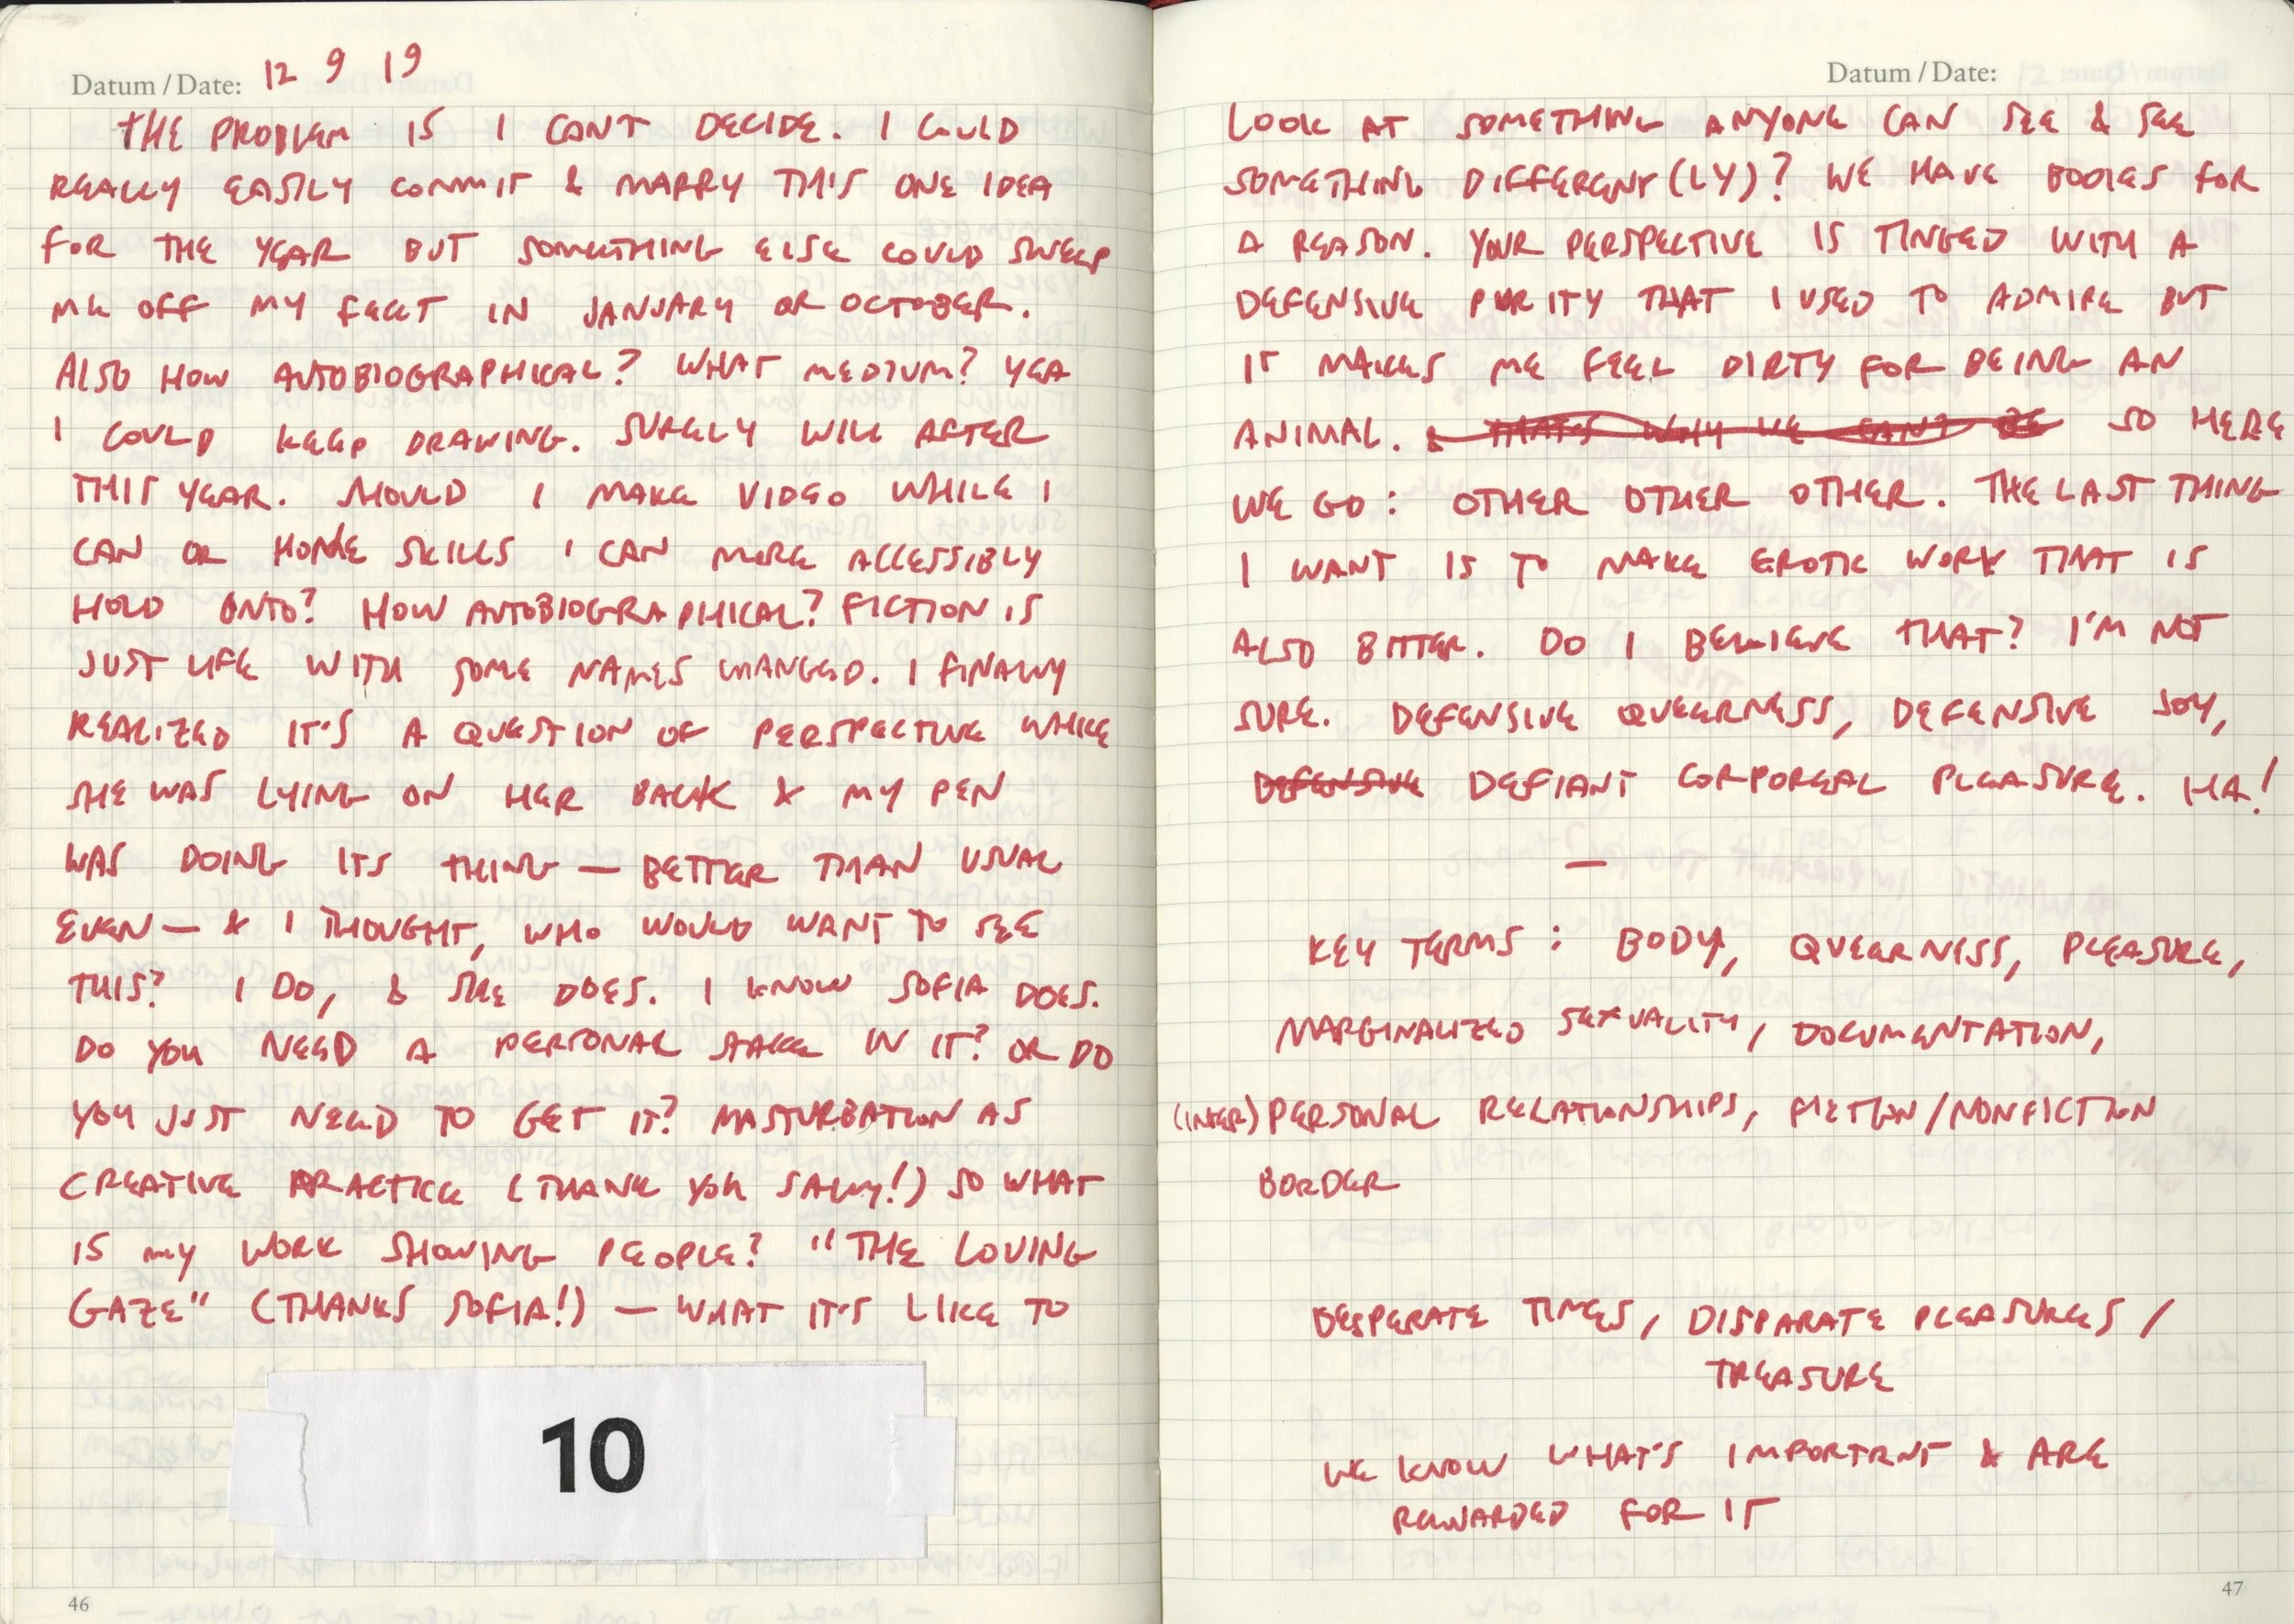 Datum / Date: 12 9 19
THE PROBLEM IS I CAN'T DECIDE. I COULD
REALLY EASILY COMMIT & MARRY THIS ONE IDEA
FOR THE YEAR BUT SOMETHING ELSE COULD SWEEP
ME OFF MY FEET IN JANUARY OR OCTOBER.
ALSO HOW AUTOBIOGRAPHICAL? WHAT MEDIUM? YEA
I COULD KEEP DRAWING. SURELY WILL AFTER
THIS YEAR. SHOULD I MAKE VIDEO WHILE I
CAN OR HONE SKILLS I CAN MORE ACCESSIBLY
HOLD ONTO? HOW AUTOBIOGRAPHICAL? FICTION IS
JUST LIFE WITH SOME NAMES CHANGED. I FINALLY
REALIZED IT'S A QUESTION OF PERSPECTIVE WHILE
SHE WAS LYING ON HER BACK & MY PEN
WAS DOING ITS THING — BETTER THAN USUAL
EVEN — & I THOUGHT, WHO WOULD WANT TO SEE
THIS? I DO, & SHE DOES. I KNOW SOFIA DOES.
DO YOU NEED A PERSONAL STAKE IN IT? OR DO
YOU JUST NEED TO GET IT? MASTURBATION AS
CREATIVE PRACTICE (THANK YOU SALLY!) SO WHAT
IS MY WORK SHOWING PEOPLE? "THE LOVING
GAZE" (THANKS SOFIA!) — WHAT IT'S LIKE TO
10
46
Datum / Date:
LOOK AT SOMETHING ANYONE CAN SEE & SEE
SOMETHING DIFFERENT(LY)? WE HAVE BODIES FOR
A REASON. YOUR PERSPECTIVE IS TINGED WITH A
DEFENSIVE PURITY THAT I USED TO ADMIRE BUT
IT MAKES ME FEEL DIRTY FOR BEING AN
ANIMAL. & THAT'S WHY WE CAN'T BE SO HERE
WE GO: OTHER OTHER OTHER. THE LAST THING
I WANT IS TO MAKE EROTIC WORK THAT IS
ALSO BITTER. DO I BELIEVE THAT? I'M NOT
SURE. DEFENSIVE QUEERNESS, DEFENSIVE JOY,
DEFENSIVE DEFIANT CORPOREAL PLEASURE. HA!
—
KEY TERMS: BODY, QUEERNESS, PLEASURE,
MARGINALIZED SEXUALITY, DOCUMENTATION,
(INTER)PERSONAL RELATIONSHIPS, FICTION/NONFICTION
BORDER
DESPERATE TIMES, DISPARATE PLEASURES /
TREASURE
WE KNOW WHAT'S IMPORTANT & ARE
REWARDED FOR IT
47